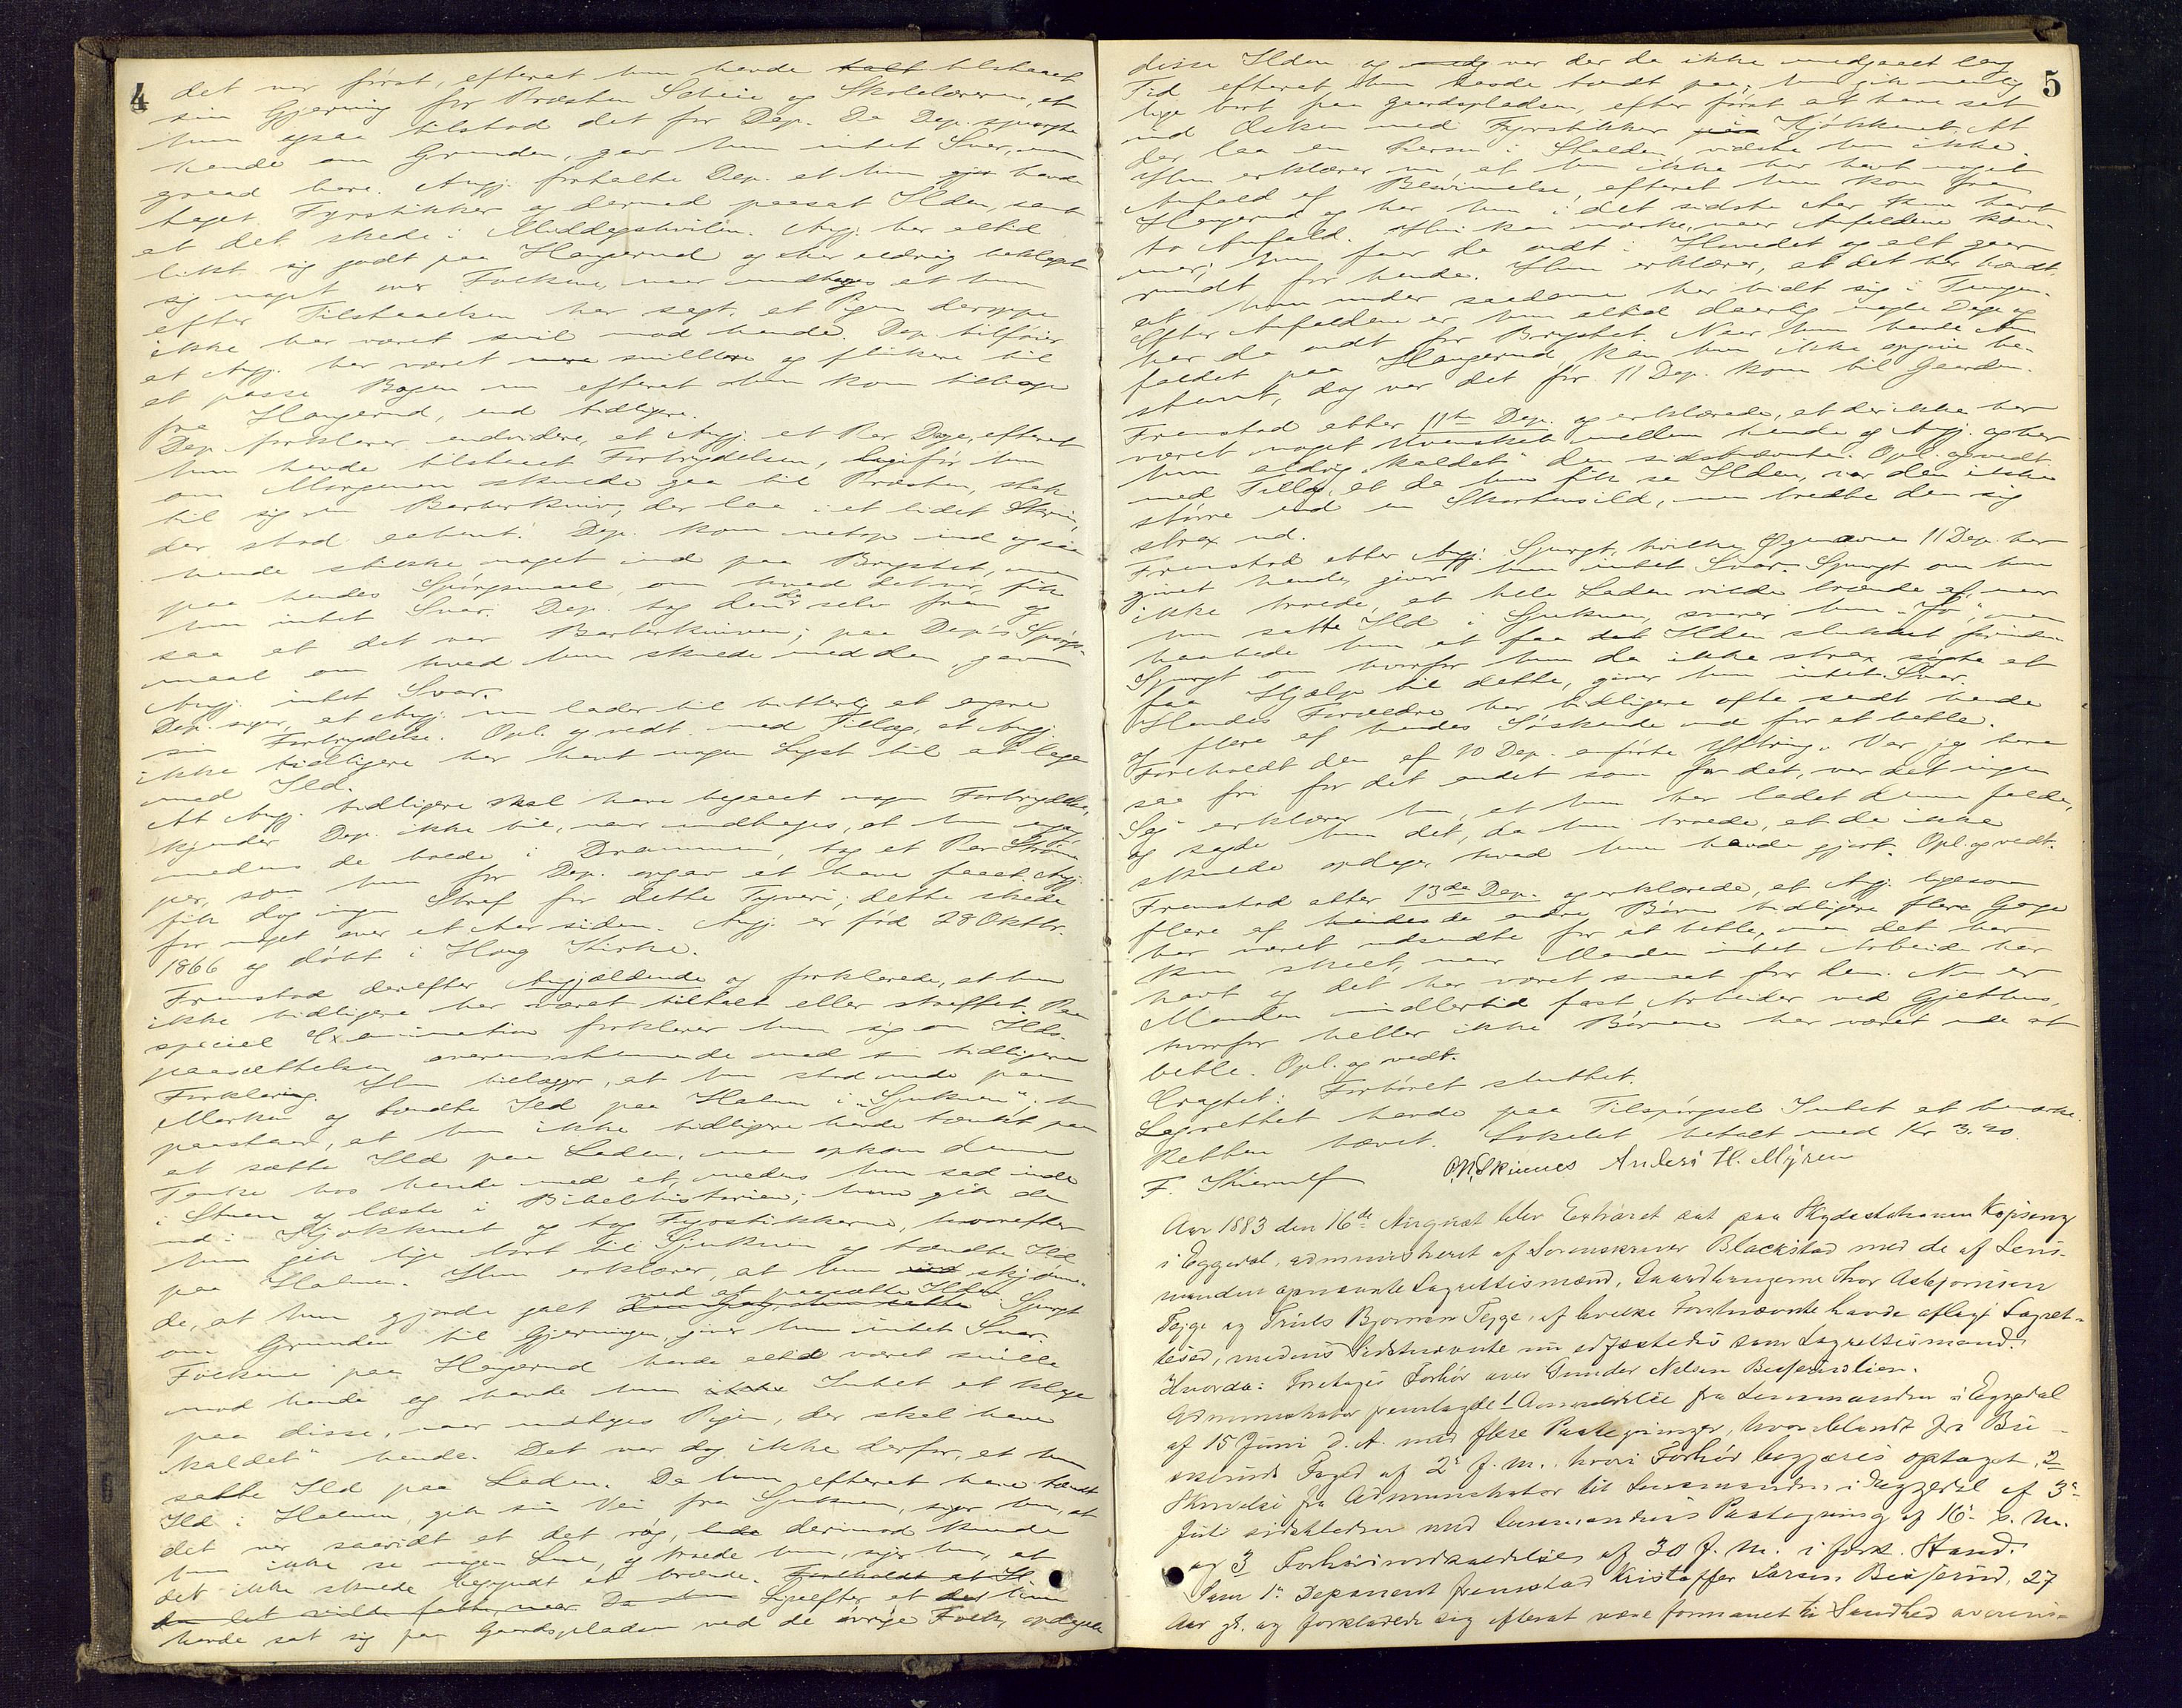 4
det var först, efterat hun havde talt tilstaaet
sin Gjerning for Præsten Scheie og Skolelæreren, at
hun ogsaa tilstod det for Dep. Da Dep. spurgte
hende om Grunden, gav hun intet Svar, men
græd bare. Angj. fortalte Dep. at hun havde
taget Fyrstikker og dermed paasat Ilden, samt
at det skede i Middagshvilen. Angj. har altid
likt sig godt paa Haugerud og har aldrig beklaget
sig noget over Folkene, naar undtages at hun
efter Tilstaaelsen har sagt, at Pigen deroppe
ikke har været snil mod hende. Dep. tilföier
at Angj. har været mere snillere og flinkere til
at passe Bogen nu efterat hun kom tilbage
fra Haugerud, end tidligere.
Dep. forklarer endvidere, at Angj. et Par Dage, efterat
hun havde tilstaaet Forbrydelsen, ligeför hun
om Morgenen skulde gaa til Præsten, stak
til sig en Barberkniv, der laa i et lidet Skrin,
der stod aabent. Dep. kom netop ind og saa
hende stikke noget ind paa Brystet, men
paa hendes Spörgsmaal, om hvad det var, fik
hun intet Svar. Dep. tog den da selv frem og
saa at det var Barberkniven; paa Dep's Spörgs-
maal om hvad hun skulde med den, gav
Angj. intet Svar.
Dep. siger, at Angj. nu lader til bitterlig at angre
sin Forbrydelse. Opl. og vedt. med Tillæg, at Angj.
ikke tidligere har havt nogen Lyst til at lege
med Ild.
At Angj. tidligere skal have begaaet nogen Forbrydelse,
kjender Dep. ikke til, naar undtages, at hun engang,
medens de boede i Drammen, tog et Par Ström-
per, som hun for Dep. opgav at have faaet. Angj.
fik dog ingen Straf for dette Tyveri; dette skede
for noget over et Aar siden. Angj. er född 28 Oktbr.
1866 og döbt i Haug Kirke.
Fremstod derefter Angjældende og forklarede, at hun
ikke tidligere har været tiltalt eller straffet. Paa
speciel Examination forklarer hun sig om Ilds-
paasættelsen overensstemmende med sin tidligere
Forklaring. Hun tillægger, at hun stod nede paa
Marken og tændte Ild paa Halmen i "Sjukuen"; hun
paastaar, at hun ikke tidligere havde tænkt paa
at sætte Ild paa Laden, men opkom denne
Tanke hos hende med et, medens hun sad inde
i Stuen og læste i Bibelhistorien; hun gik da
ud i Kjökkenet og tog Fyrstikkerne, hvorefter
hun gik lige bort til Sjukuen og tændte Ild
paa Halmen. Hun erklærer, at hun skjönne-
de, at hun gjorde galt ved at paasætte Ilden. Spurgt
om Grunden til Gjerningen, giver hun intet Svar.
Folkene paa Haugerud havde altid været snille
mod hende og havde hun ikke Intet at klage
paa disse, naar undtages Pigen, der skal have
"kaldet" hende. Det var dog ikke derfor, at hun
satte Ild paa Laden. Da hun, efterat have tændt
Ild i Halmen, gik sin Vei fra Sjukuen, siger hun, at
det var saavidt at det rög, derimod kunde
hun ikke se nogen Lue, og troede hun, siger hun, at
det ikke skulde begyndt at brænde. Foreholdt at
Ligeefter at hun
havde sat sig paa Gaardspladsen ved de övrige Folk, opdagede
5
disse Ilden og var der da ikke medgaaet lang
Tid efterat hun havde tændt paa; hun gik nemlig
lige bort paa Gaardspladsen, efter först at have sat
ind Æsken med Fyrstikker paa Kjökkenet. At
der laa en Person i Stalden, vidste hun ikke.
Hun erklærer nu, at hun ikke har havt noget
Anfald af Besvimelse, efterat hun kom fra
Haugerud og har hun i det sidste Aar kun havt
to Anfald. Hun kan mærke, naar Anfaldene kom-
mer; hun faar da ondt i Hovedet og alt gaar
rundt for hende. Hun erklærer, at det har hændt
at hun under saadanne har bidt sig i Tungen.
Efter Anfaldene er hun altid daarlig nogle Dage og
har da ondt for Brystet. Naar hun havde An-
faldet paa Haugerud, kan hun ikke opgive be-
stemt, dog var det för 11 Dep. kom til Gaarden.
Fremstod atter 11te Dep. og erklærede, at der ikke har
været noget Uvenskab mellem hende og Angj. og har
hun aldrig "kaldet" den sidstnævnte. Opl. og vedt.
med Tillæg, at da hun fik se Ilden, var den ikke
större end en Skorstensild, men bredte den sig
strax ud.
Fremstod atter Angj. Spurgt, hvilke Ögenavne 11 Dep. har
givet hende, giver hun intet Svar. Spurgt om hun
ikke troede, at hele Laden vilde brænde af, naar
hun satte Ild i Sjukuen, svarer hun "Jo", men
haabede hun at faa det Ilden slukket forinden.
Spurgt om hvorfor hun da ikke strax sögte at
faa Hjælp til dette, giver hun intet Svar.
Hendes Forældre har tidligere ofte sendt hende
og flere af hendes Söskende ud for at betle.
Foreholdt den af 10 Dep. anförte Ytring: "Var jeg bare
saa fri for det andet som for det, var det ingen
Sag" erklærer hun, at hun har ladet denne falde,
og sagde hun det, da hun troede, at de ikke
skulde opdage, hvad hun havde gjort. Opl. og vedt.
Fremstod atter 13de Dep. og erklærede, at Angj. ligesom
flere af hendes de andre Börn tidligere flere Gange
har været udsendte for at betle, men det har
kun skeet, naar Manden intet Arbeide har
havt og det har været smaat for dem. Nu er
Manden imidlertid fast Arbeider ved Gjethus,
hvorfor heller ikke Börnene har været ude at
betle. Opl. og vedt.
Eragtet: Forhöret sluttet.
Lagrettet havde paa Tilspörgsel Intet at bemærke.
Retten hævet. Lokalet betalt med Kr 3.20.
F. Thierulf O.N. Skinnes Anders H. Myren
Aar 1883 den 16de August blev Extraret sat paa Skydsstationen Kopseng
i Eggedal, administreret af Sorenskriver Blackstad med de af Lens-
manden opnævnte Lagrettesmænd, Gaardbrugerne Thor Asbjörnsen
Teige og Truls Bjørnsen Teige, af hvilke Førstnævnte havde aflagt Lagret-
tesed, medens Sidstnævnte nu edfæstedes som Lagrettesmand.
Hvorda: Foretoges Forhör over Gunder Nilsen Beiserudlien.
Administrator fremlagde 1 Anmeldelse fra Lensmanden i Eggedal
af 15 Juni d. A. med flere Paategninger, hvoriblandt fra Bu-
skeruds Foged af 2 f. M. hvori Forhör begjæres optaget, 2
Skrivelse fra Administrator til Lensmanden i Eggedal af 3
Juli sidstleden med Lensmandens Paategning af 16 s. M.
og 3 Forhörsindkaldelse af 30 f. M. i fork. Stand.
Som 1 Deponent fremstod Kristoffer Larsen Beiserud, 27
Aar gl. og forklarede sig efterat være formanet til Sandhed overens-